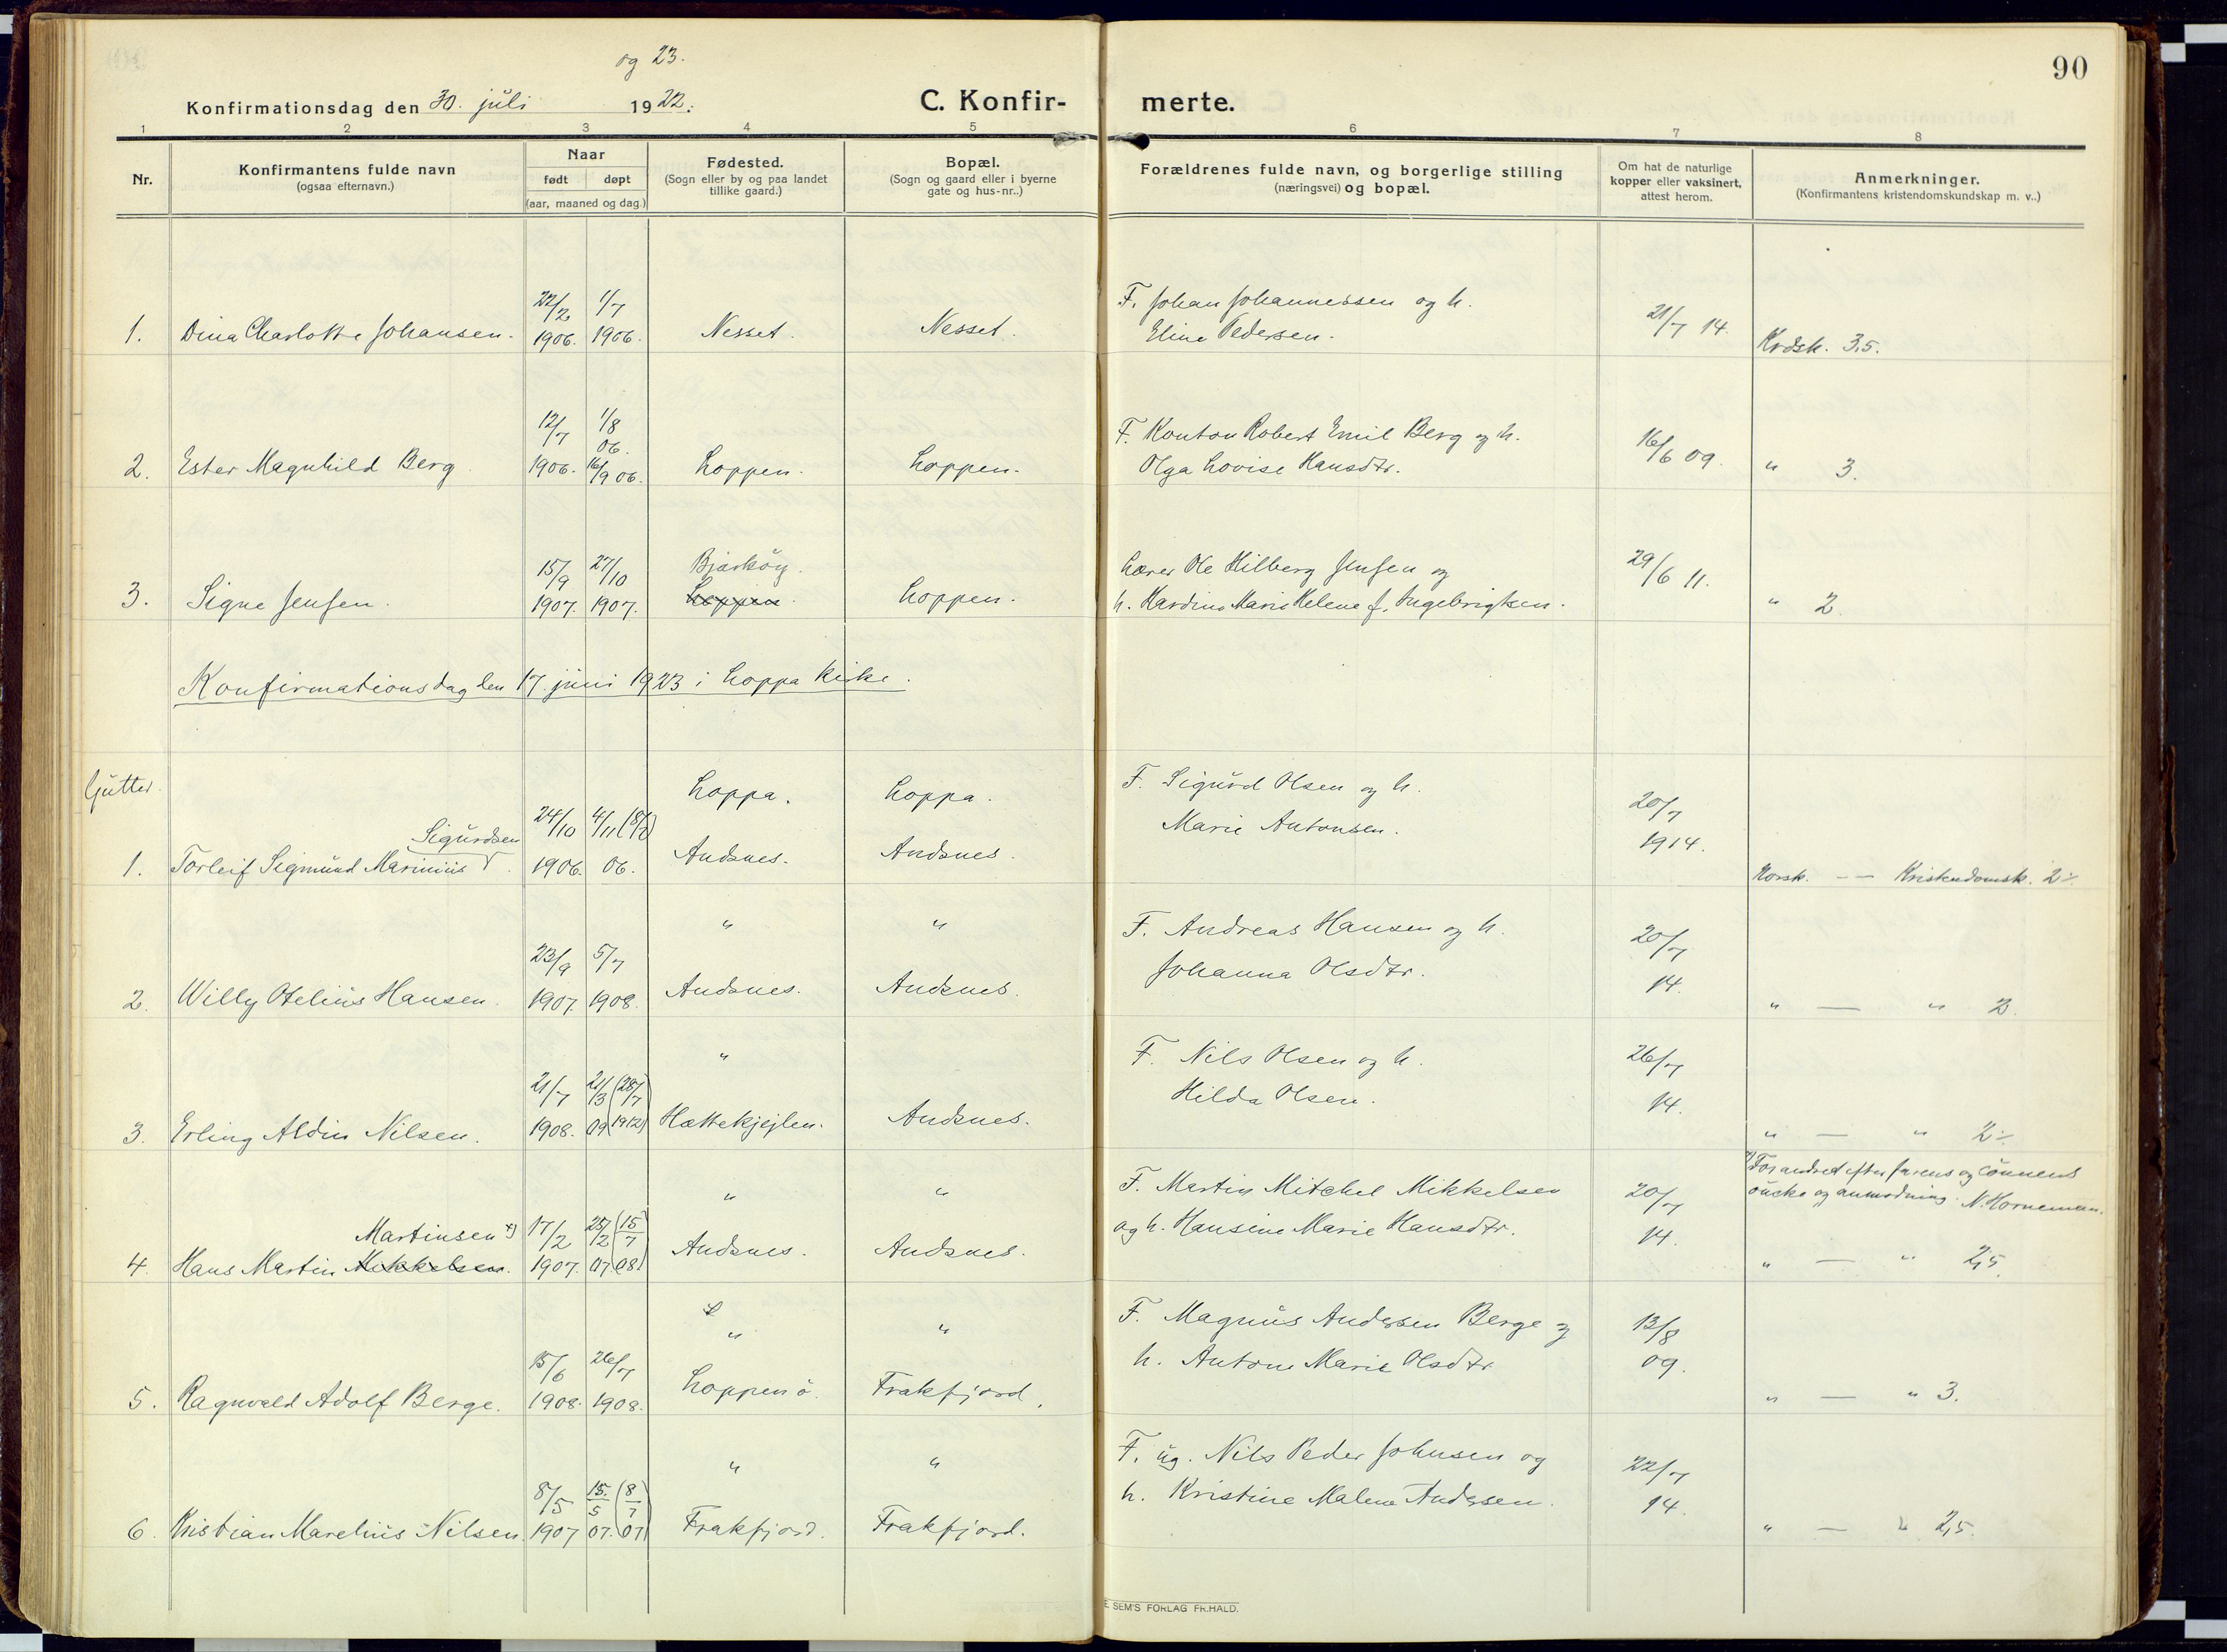 og 23.
90
Konfirmationsdag den 30. juli 1922. C. Konfir- merte.
1 2 3 4 5 6 7 8
Nr.
Konfirmantens fulde navn
(ogsaa efternavn.)
Naar
født døpt
(aar, maaned og dag.)
Fødested.
(Sogn eller by og paa landet
tillike gaard.)
Bopæl.
(Sogn og gaard eller i byerne
gate og hus-nr..)
Forældrenes fulde navn, og borgerlige stilling
(næringsvei) og bopæl.
Om hat de naturlige
kopper eller vaksinert,
attest herom.
Anmerkninger.
(Konfirmantens kristendomskundskap m. v..)
22/2 1/7 F. Johan Johannessen og h.
1. Dina Charlotte Johansen. 1906. 1906. Nesset. Nesset. Eline Pedersen. 21/7 14. Krdsk. 3.5.
12/7 1/8 06. F. Konton Robert Emil Berg og h.
2. Ester Magnhild Berg. 1906. 16/9 06. Loppen. Loppen. Olga Lovise Hansdtr. 16/6 09. " 3.
15/9 27/10 Bjarköy. Lærer Ole Hilberg Jensen og 29/6 11.
3. Signe Jensen. 1907. 1907. Loppen. Loppen. h. Hardine Marie Helene f. Ingebrigtsen. " 2.
Konfirmationsdag den 17. juni 1923 i Loppa Kirke.
Gutter. Loppa. Loppa. F. Sigurd Olsen og h. 20/7
Sigurdsen 24/10 4/11 (8/7) Marie Antonsen. 1914.
1. Torleif Sigmund Marinius 1906. 06. Andsnes. Andsnes. Norsk. — Kristendomsk. 2÷
" " F. Andreas Hansen og h. 20/7
23/9 5/7 Johanna Olsdtr. 14.
2. Willy Otelius Hansen. 1907. 1908. Andsnes. Andsnes. " — " 2.
" F. Nils Olsen og h. 26/7
21/7 21/3 (28/7 Hilda Olsen. 14.
3. Erling Aldin Nilsen. 1908. 09 1912) Hættekjejlen. Andsnes. " — " 2÷
x) Forandret efter farens og sønnens
" " F. Martin Mitchel Mikkelsen 20/7 önske og anmodning. N. Horneman.
Martinsen x) 17/2 25/2 (15/7 og h. Hansine Marie Hansdtr. 14.
4. Hans Martin Mikkelsen. 1907. 07 08) Andsnes. Andsnes. " — " 2,5.
" " F. Magnus Andersen Berge og 13/8
15/6 26/7 h. Antone Marie Olsdtr 09.
5. Ragnvald Adolf Berge. 1908. 1908. Loppenö. Frakfjord. " — " 3.
" " F. ug. Nils Peder Johnsen og 22/7
8/5 15./5 (8/7 h. Kristine Malene Andersen. 14.
6. Kristian Marelius Nilsen. 1907 07. 07) Frakfjord. Frakfjord. " — " 2,5.
E SEM'S FORLAG FR.HALD.